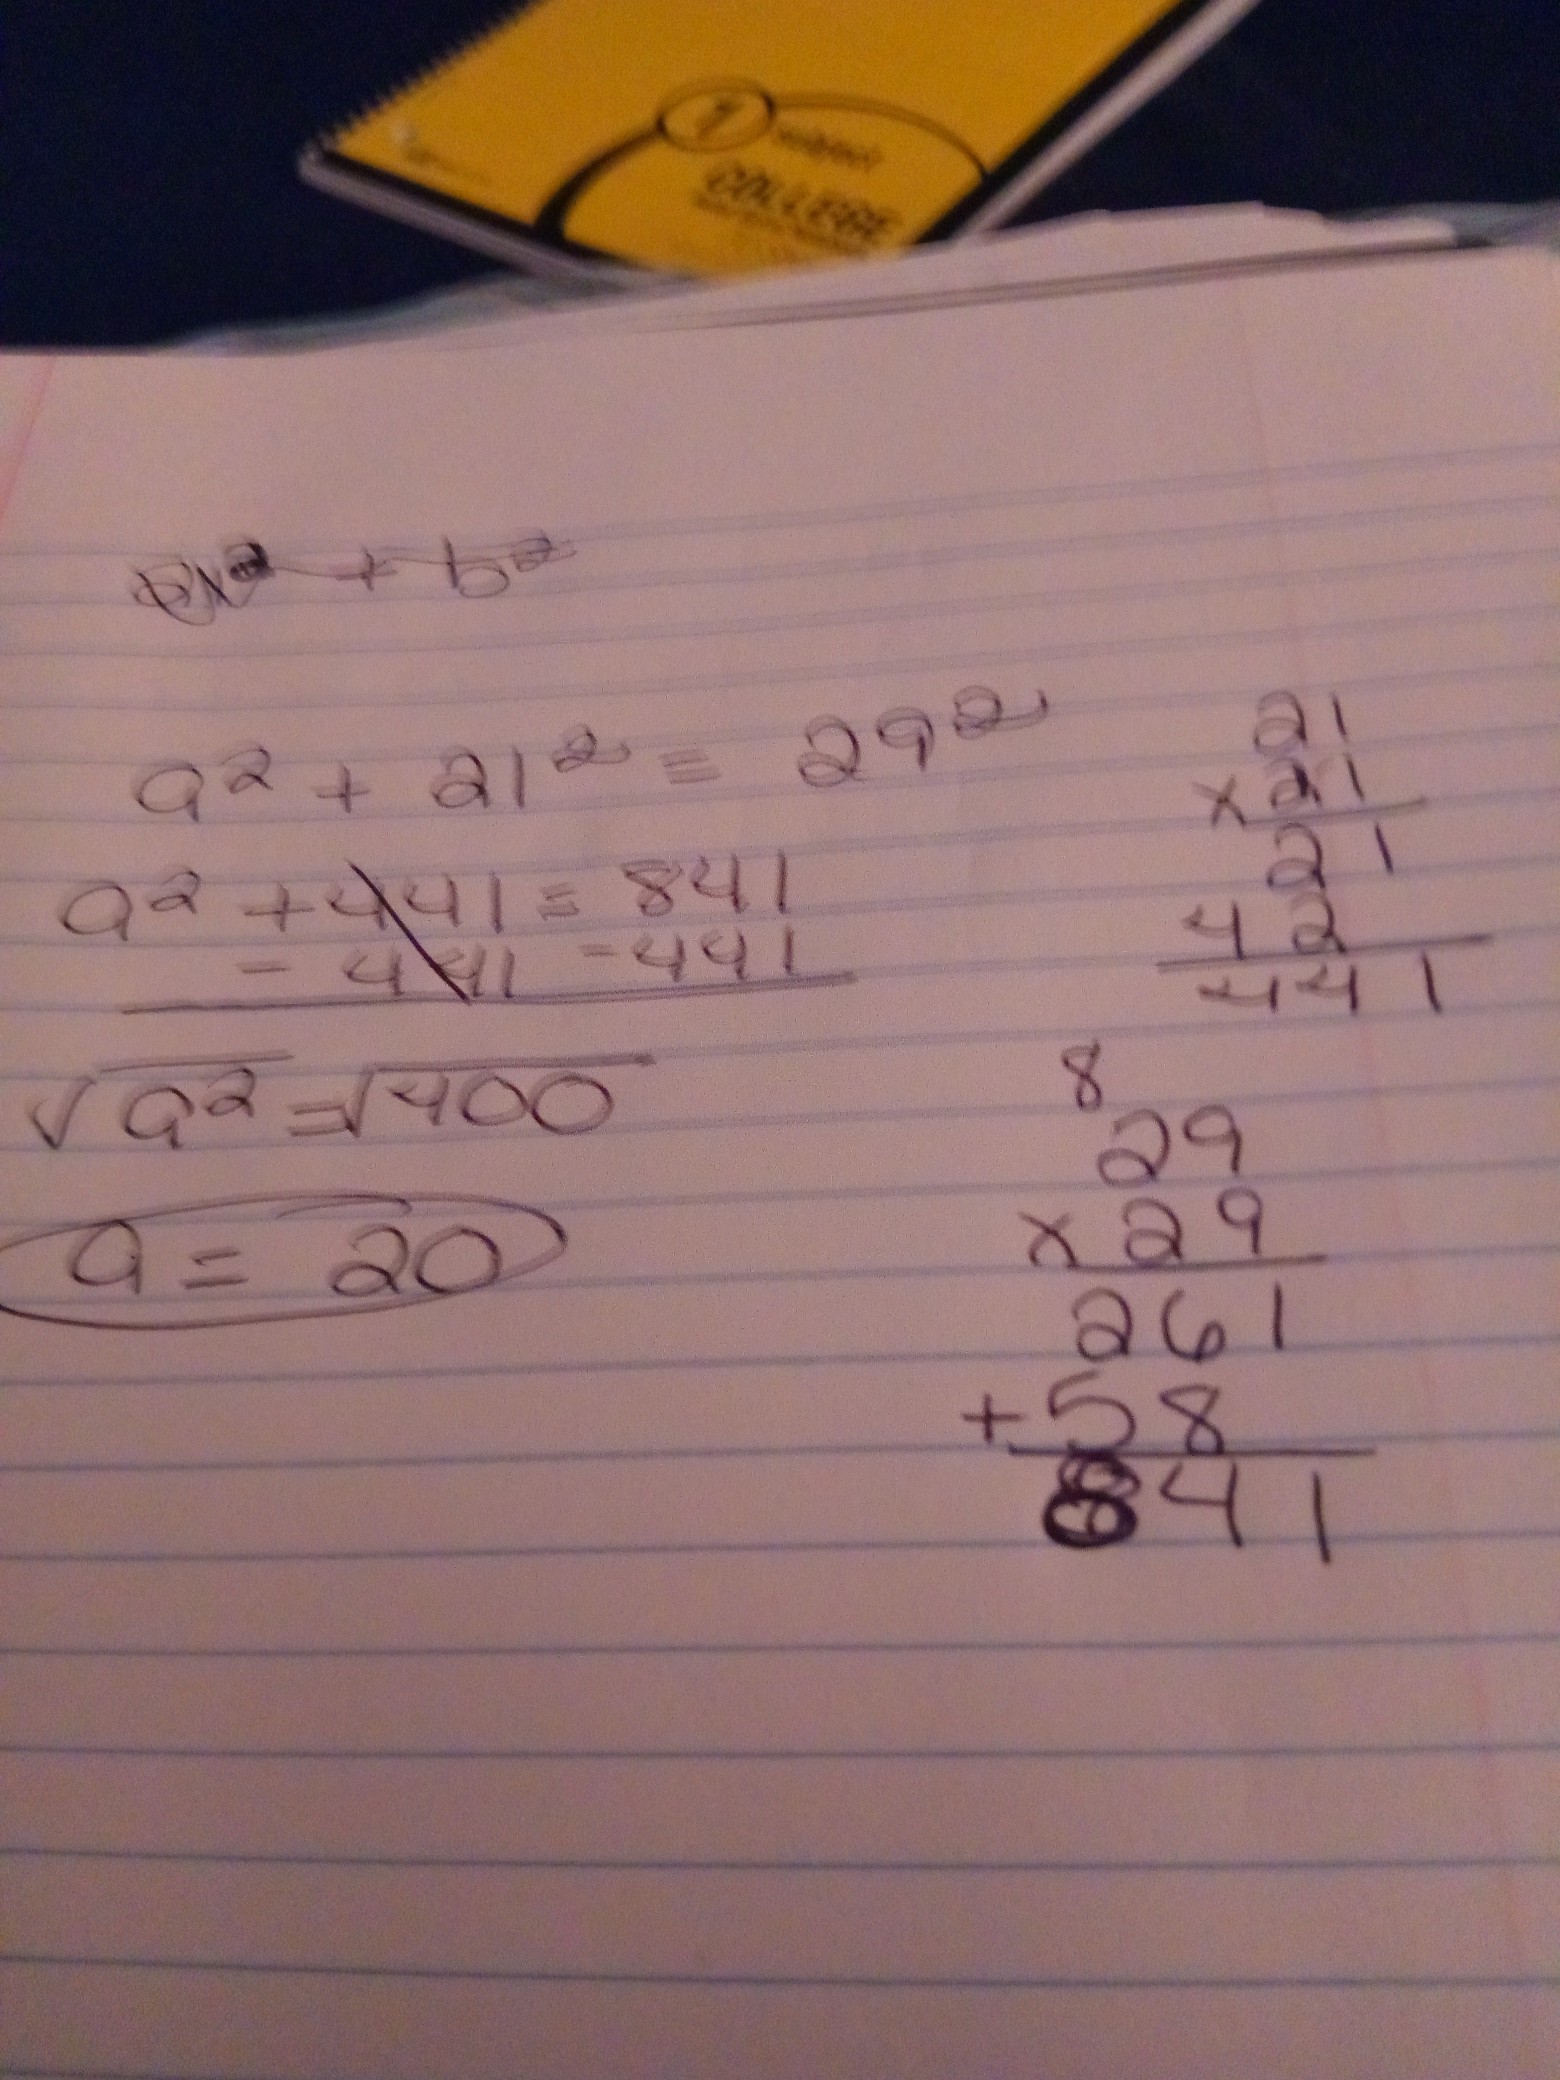 1 subject
COLLEGE
a² + b²
a² + 21² = 29²
a² + 441 = 841
- 441 - 441
√a² = √400
a = 20
21
x 21
21
42
441
8
29
x 29
261
+ 58
841